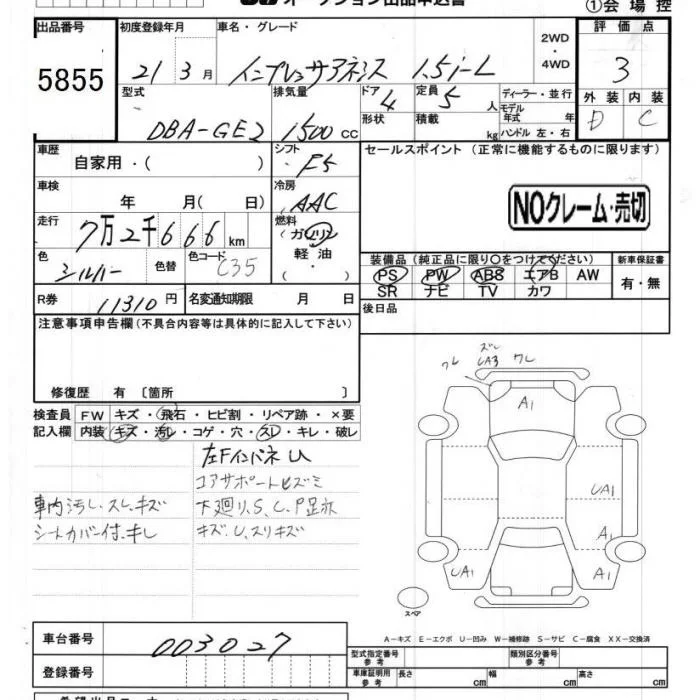 オークション出品申込書
①会場控
出品番号 初度登録年月 車名・グレード 2WD・4WD 評価点
5855 21年3月 インプレッサアネシス 1.5i-L 3
型式 排気量 ドア 4 定員 5人 ディーラー・並行 外装 内装
DBA-GE2 1500cc 形状 積載 kg モデル年式 年 ハンドル 左・右 D C
車歴 自家用・( ) シフト F5 セールスポイント (正常に機能するものに限ります)
車検 年 月(日) 冷房 AAC
NOクレーム・売切
走行 7万2千666km 燃料 (ガソリン)
軽油
( ・ )
色 シルバー 色替 色コード C35
装備品 (純正品に限り〇をつけてください) 新車保証書
PS PW ABS エアB AW 有・無
SR ナビ TV カワ
R券 11310円 名変通知期限 月 日 後日品
注意事項申告欄(不具合内容等は具体的に記入して下さい)
修復歴 有〔箇所 〕
検査員 FW キズ・飛石・ヒビ割・リペア跡・×要
記入欄 内装 キズ・汚レ・コゲ・穴・スレ・キレ・破レ
左Fインパネ U
コアサポートヒズミ
車内汚し、スレ、キズ 下廻り、S、C、
シートカバー付、キレ キズ、U、スリキズ
ワレ UA3 ワレ
A1
UA1
A1
UA1 A1
スペア
A-キズ E-エクボ U-凹み W-補修跡 S-サビ C-腐食 XX-交換済
車台番号 003027
型式指定番号 参考 類別区分番号 参考
登録番号 車庫証明用 参考 長さ cm 幅 cm 高さ cm